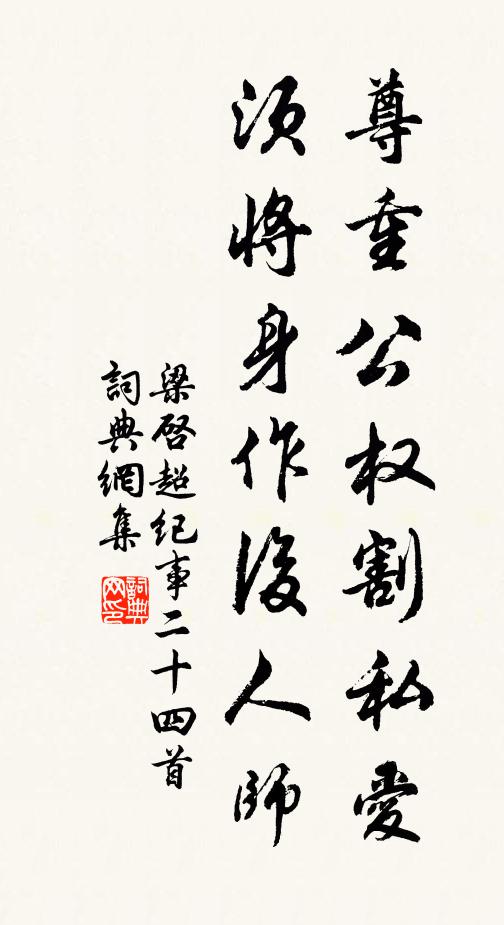 尊重公权割私爱
须将身作后人师
梁启超纪事二十四首
词典網集
詞典
网印